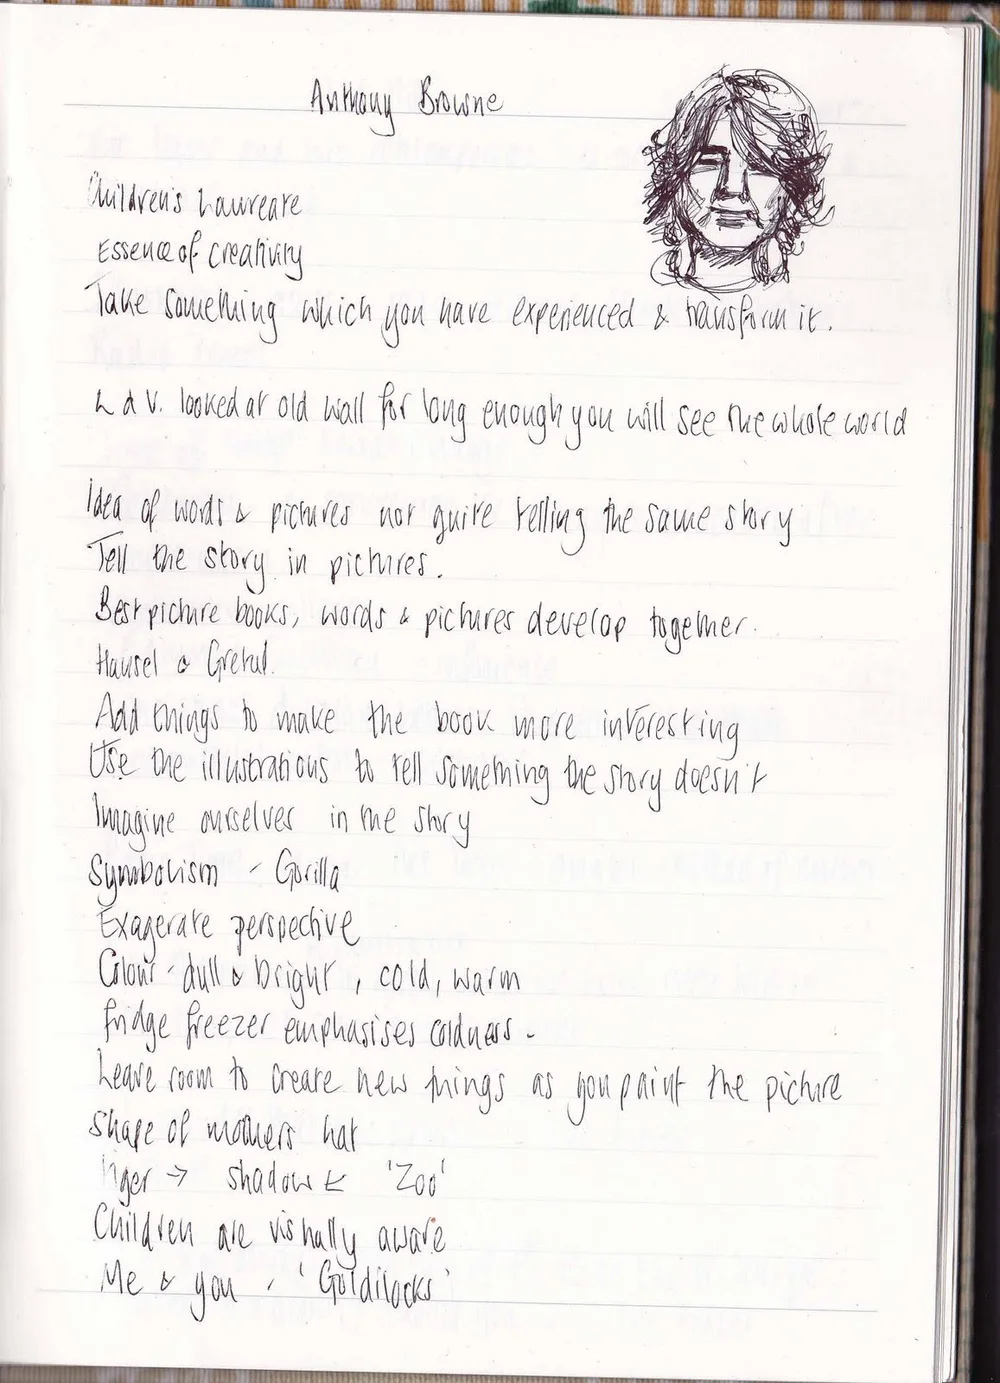 Anthony Browne
Children's Laureate
Essence of creativity
Take something which you have experienced & transform it.
L d V. looked at old wall for long enough you will see the whole world
Idea of words & pictures not quite telling the same story
Tell the story in pictures.
Best picture books, words & pictures develop together.
Hansel & Gretal.
Add things to make the book more interesting
Use the illustrations to tell something the story doesn't
Imagine ourselves in the story
Symbolism - Gorilla
Exagerate perspective
Colour - dull & bright, cold, warm
fridge freezer emphasises coldness -
Leave room to create new things as you paint the picture
Shape of mothers hat
Tiger → shadow ← 'Zoo'
Children are visually aware
Me & you - 'Goldilocks'